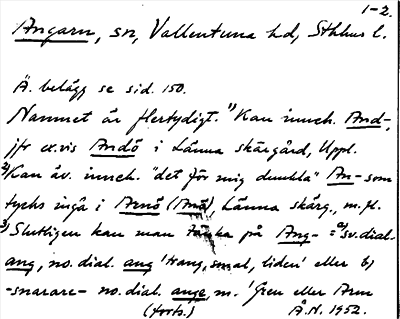 1-2.
Angarn, sn, Vallentuna hd, Sthlms l.
Ä. belägg se sid. 150.
Namnet är flertydigt. 1) Kan inneh. And-,
jfr ex.vis Andö i Länna skärgård, Uppl.
2) Kan äv. inneh. "det för mig dunkla" An- som
tycks ingå i Arnö (Anö), Länna skärg., m.fl.
3) Slutligen kan man tänka på Ang- = a) sv.dial.
ang, no.dial. ang 'trang, smal, liden' eller b)
-snarare- no.dial. ange, m. 'Gren eller Arm
(forts.) Å.N. 1952.